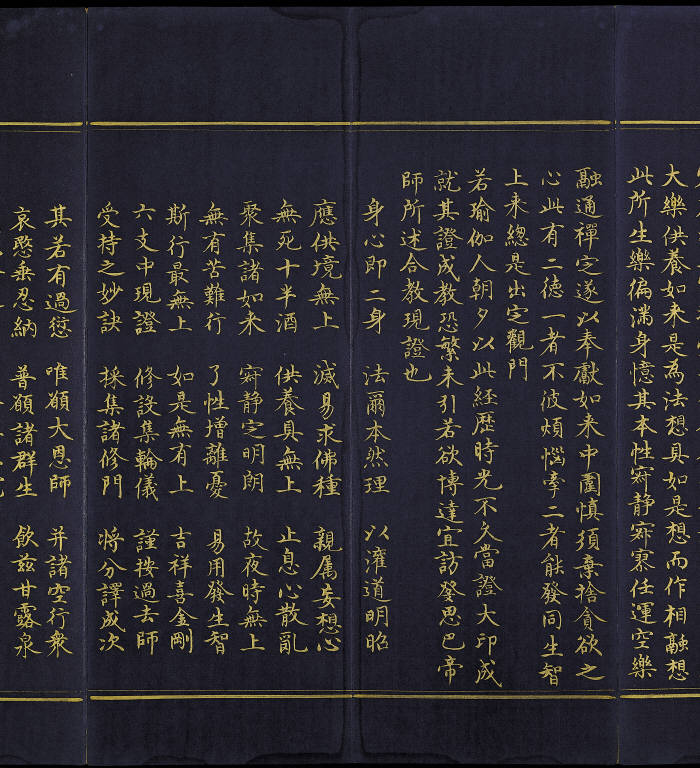 大樂供養如来是爲法想具如是想而作相融想
此所生樂徧滿身憶其本性寂静寂寞任運空樂
融通禪定遂以奉獻如来中圍慎須棄捨貪欲之
心此有二德一者不彼煩惱牽二者能發同生智
上来總是出定觀門
若瑜伽人朝夕以此經歷時光不久當證大印成
就其證成教恐繁未引若欲博達宜訪發思巴帝
師所述合教現證也
身心即二身　法爾本然理　以滙道明昭
應供境無上　滅易求佛種　親屬妄想心
無死十半酒　供養具無上　止息心散亂
聚集諸如来　寂静定明朗　故夜時無上
無有苦難行　了性增離憂　易用發生智
斯行最無上　如是無有上　吉祥喜金剛
六支中現證　修設集輪儀　謹按過去師
受持之妙訣　採集諸修門　將分譯成次
其若有過愆　唯願大恩師　并諸空行衆
哀愍垂忍納　普願諸群生　飲兹甘露泉